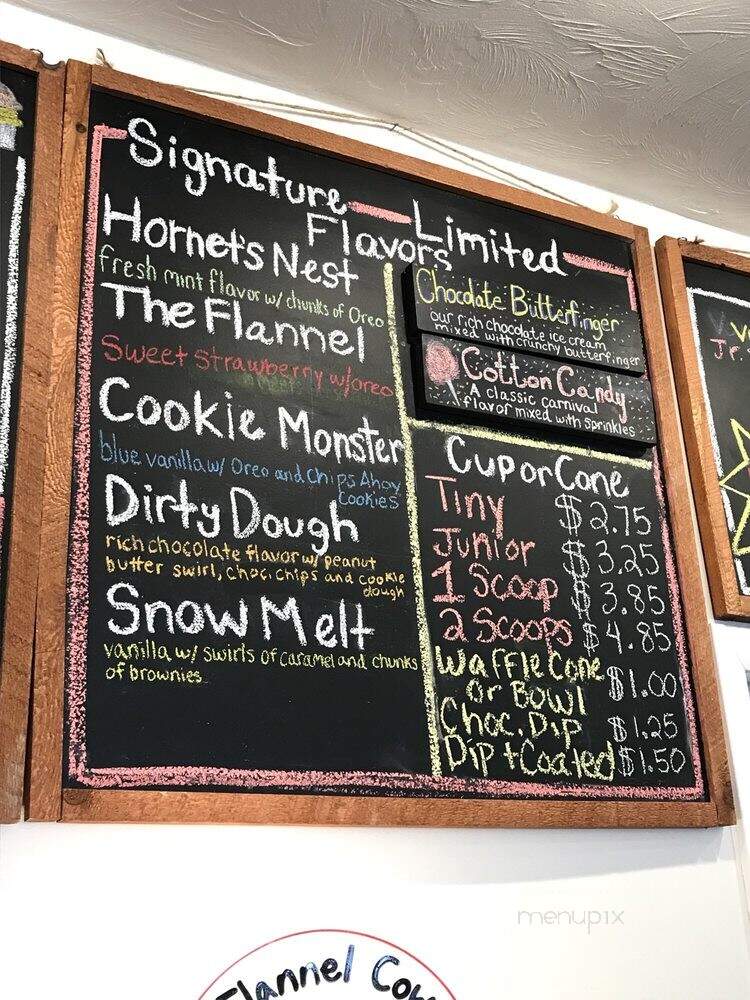 Signature
Flavors
Hornet's Nest
fresh mint flavor w/ chunks of Oreo
The Flannel
Sweet Strawberry w/oreo
Cookie Monster
blue vanilla w/ Oreo and Chips Ahoy
Cookies
Dirty Dough
rich chocolate flavor w/ peanut
butter swirl, choc. chips and cookie
dough
Snow Melt
vanilla w/ swirls of caramel and chunks
of brownies
Limited
Chocolate Butterfinger
our rich chocolate ice cream
mixed with crunchy butterfinger
Cotton Candy
A classic carnival
flavor mixed with sprinkles
Cup or Cone
Tiny $2.75
Junior $3.25
1 Scoop $3.85
2 Scoops $4.85
Waffle Cone
or Bowl $1.00
Choc. Dip $1.25
Dip + Coated $1.50
menupix
Flannel